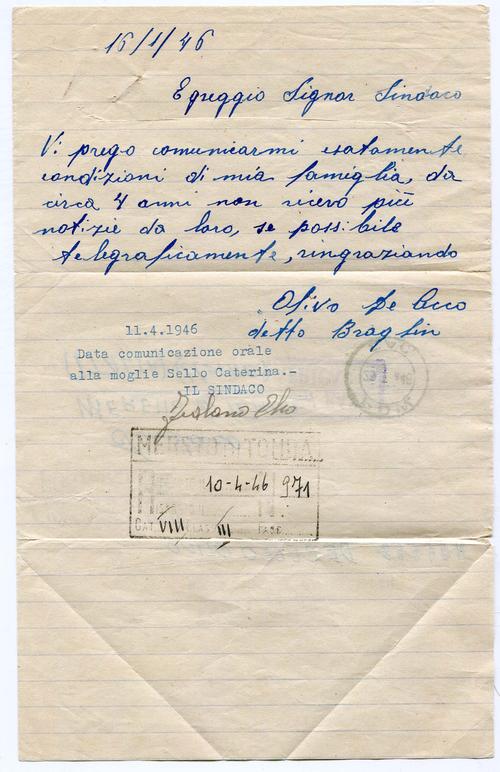 16/1/46
Egreggio Signor Sindaco
Vi prego comunicarmi esatamente
condizioni di mia famiglia, da
circa 4 anni non ricevo più
notizie da loro, se possibile
telegraficamente, ringraziando
Olivo De Cecco
detto Braglin
11.4.1946
Data comunicazione orale
alla moglie Sello Caterina.-
IL SINDACO
10-4-46 971
CAT VIII CLAS III FASC